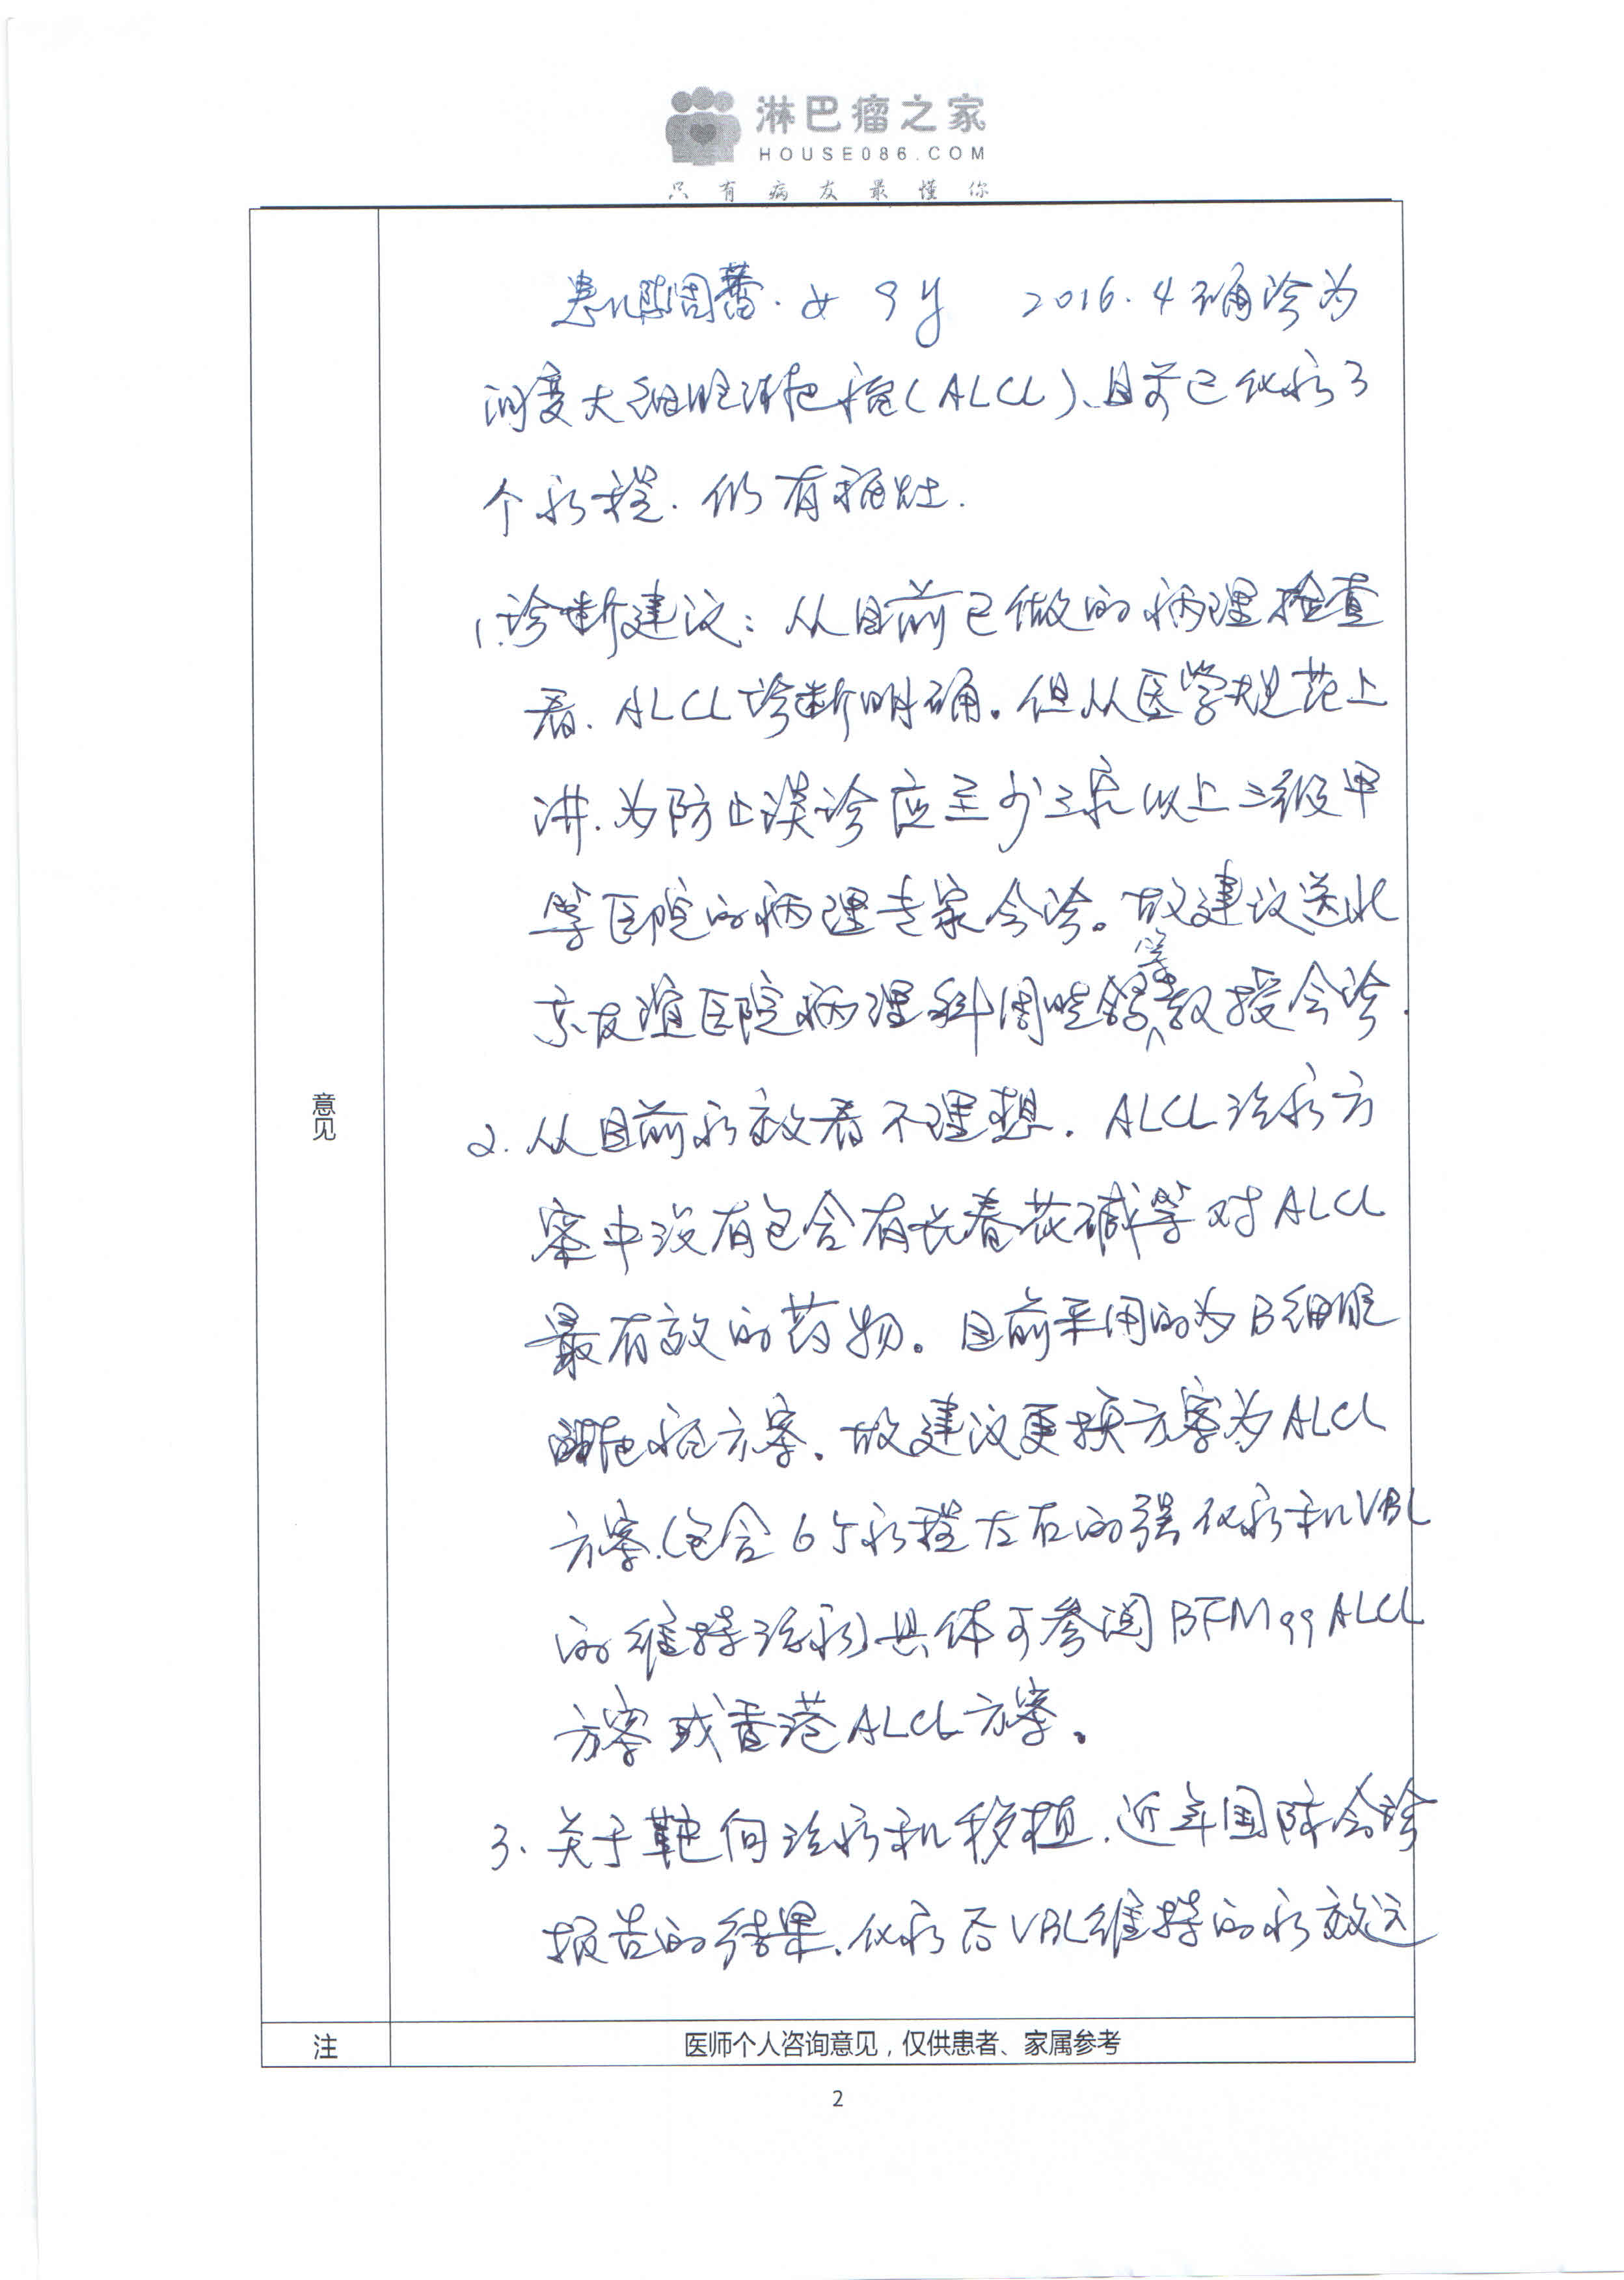 淋巴瘤之家
HOUSE086.COM
只有病友最懂你
患儿陈周蕾.女 9y 2016.4确诊为
间变大细胞淋巴瘤(ALCL)、目前已化疗3
个疗程.仍有病灶.
1.诊断建议:从目前已做的病理检查
看.ALCL诊断明确。但从医学规范上
讲.为防止误诊应至少三家以上三级甲
等医院的病理专家会诊。故建议送北
京友谊医院病理科周小鸽等教授会诊.
2.从目前疗效看不理想.ALCL治疗方
案中没有包含有长春花碱等对ALCL
最有效的药物。目前采用的为B细胞
淋巴瘤方案.故建议更换方案为ALCL
方案.(包含6个疗程左右的强化疗和VBL
的维持治疗)具体可参阅BFM99ALCL
方案或香港ALCL方案。
3.关于靶向治疗和移植.近年国际会诊
报告的结果.化疗后VBL维持的疗效远
意见
注
医师个人咨询意见,仅供患者、家属参考
2